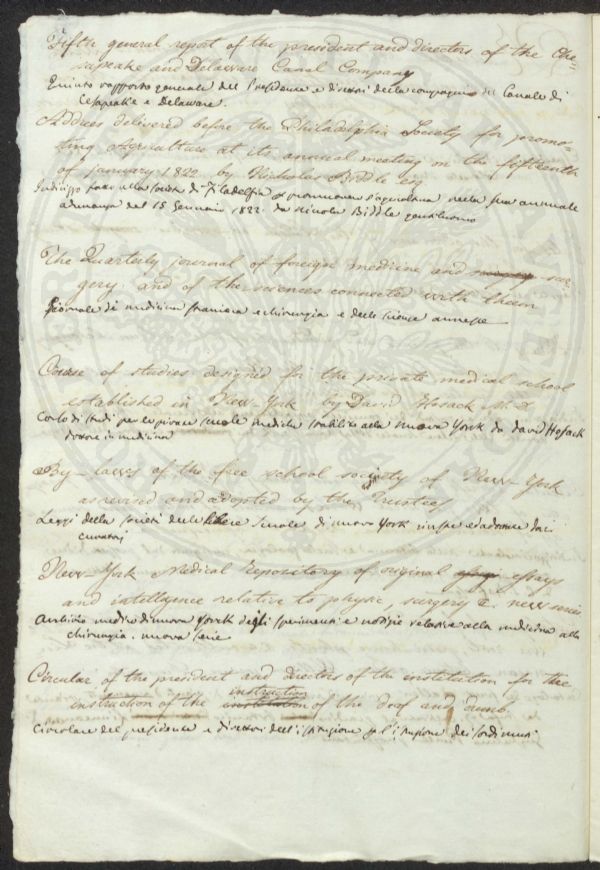 Fifth general report of the president and directors of the Che=
sapeake and Delaware Canal Company
Quinto rapporto generale del Presidente e direttori della compagnia del Canale di
Cesapeake e Delaware.
Address delivered before the Philadelphia Society for promo=
ting Agriculture at its annual meeting on the fifteenth
of january 1822 by Nicholas Biddle esq
Indirizzo fatto alla società di Filadelfia promuovere l'agricoltura nella sua annuale
adunanza del 15 Gennaio 1822. da Nicola Biddle gentiluomo
The Quarterly journal of foreign medicine and sur=
gery and of the sciences connected with them
Giornale di medicina straniera e chirurgia e delle scienze annesse
Course of studies designed for the private medical school
established in New-York by David Hosack M. D
Corso di studi per le private scuole mediche stabilite alla nuova York da David Hosack
dottore in medicina
By-laws of the free school society of New-York
as revised and adopted by the Trustees
Leggi della società delle libere Scuole di nuova York
curatori
New-York Medical Repository of original essays
and intelligence relative to physic, surgery &. new series
Archivio medico di nuova York degli sperimenti e notizie relative alla medicina alla
chirurgia. nuova serie
Circular of the president and directors of the institution for the
instruction
instruction of the institution of the deaf and dumb
Circolare del presidente e direttori dell'istituzione per l'istruzione dei sordi muti